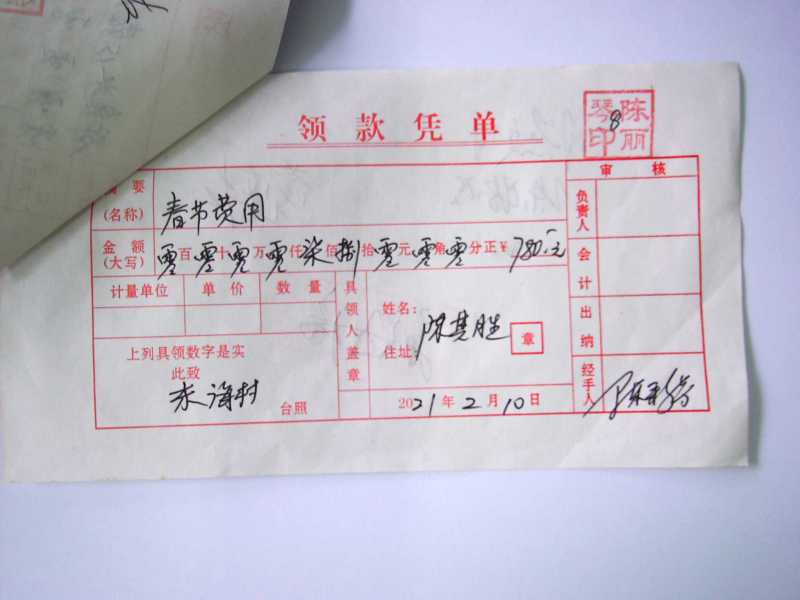 领款凭单
陈丽琴印
8
审 核
摘要(名称) 春节费用
金额(大写) 零百零十零万零仟柒佰捌拾零元零角零分正¥780.元
计量单位 单价 数量
具领人盖章
姓名: 陈其胜
住址:
章
上列具领数字是实
此致
台照
2021年2月10日
负责人
会计
出纳
经手人